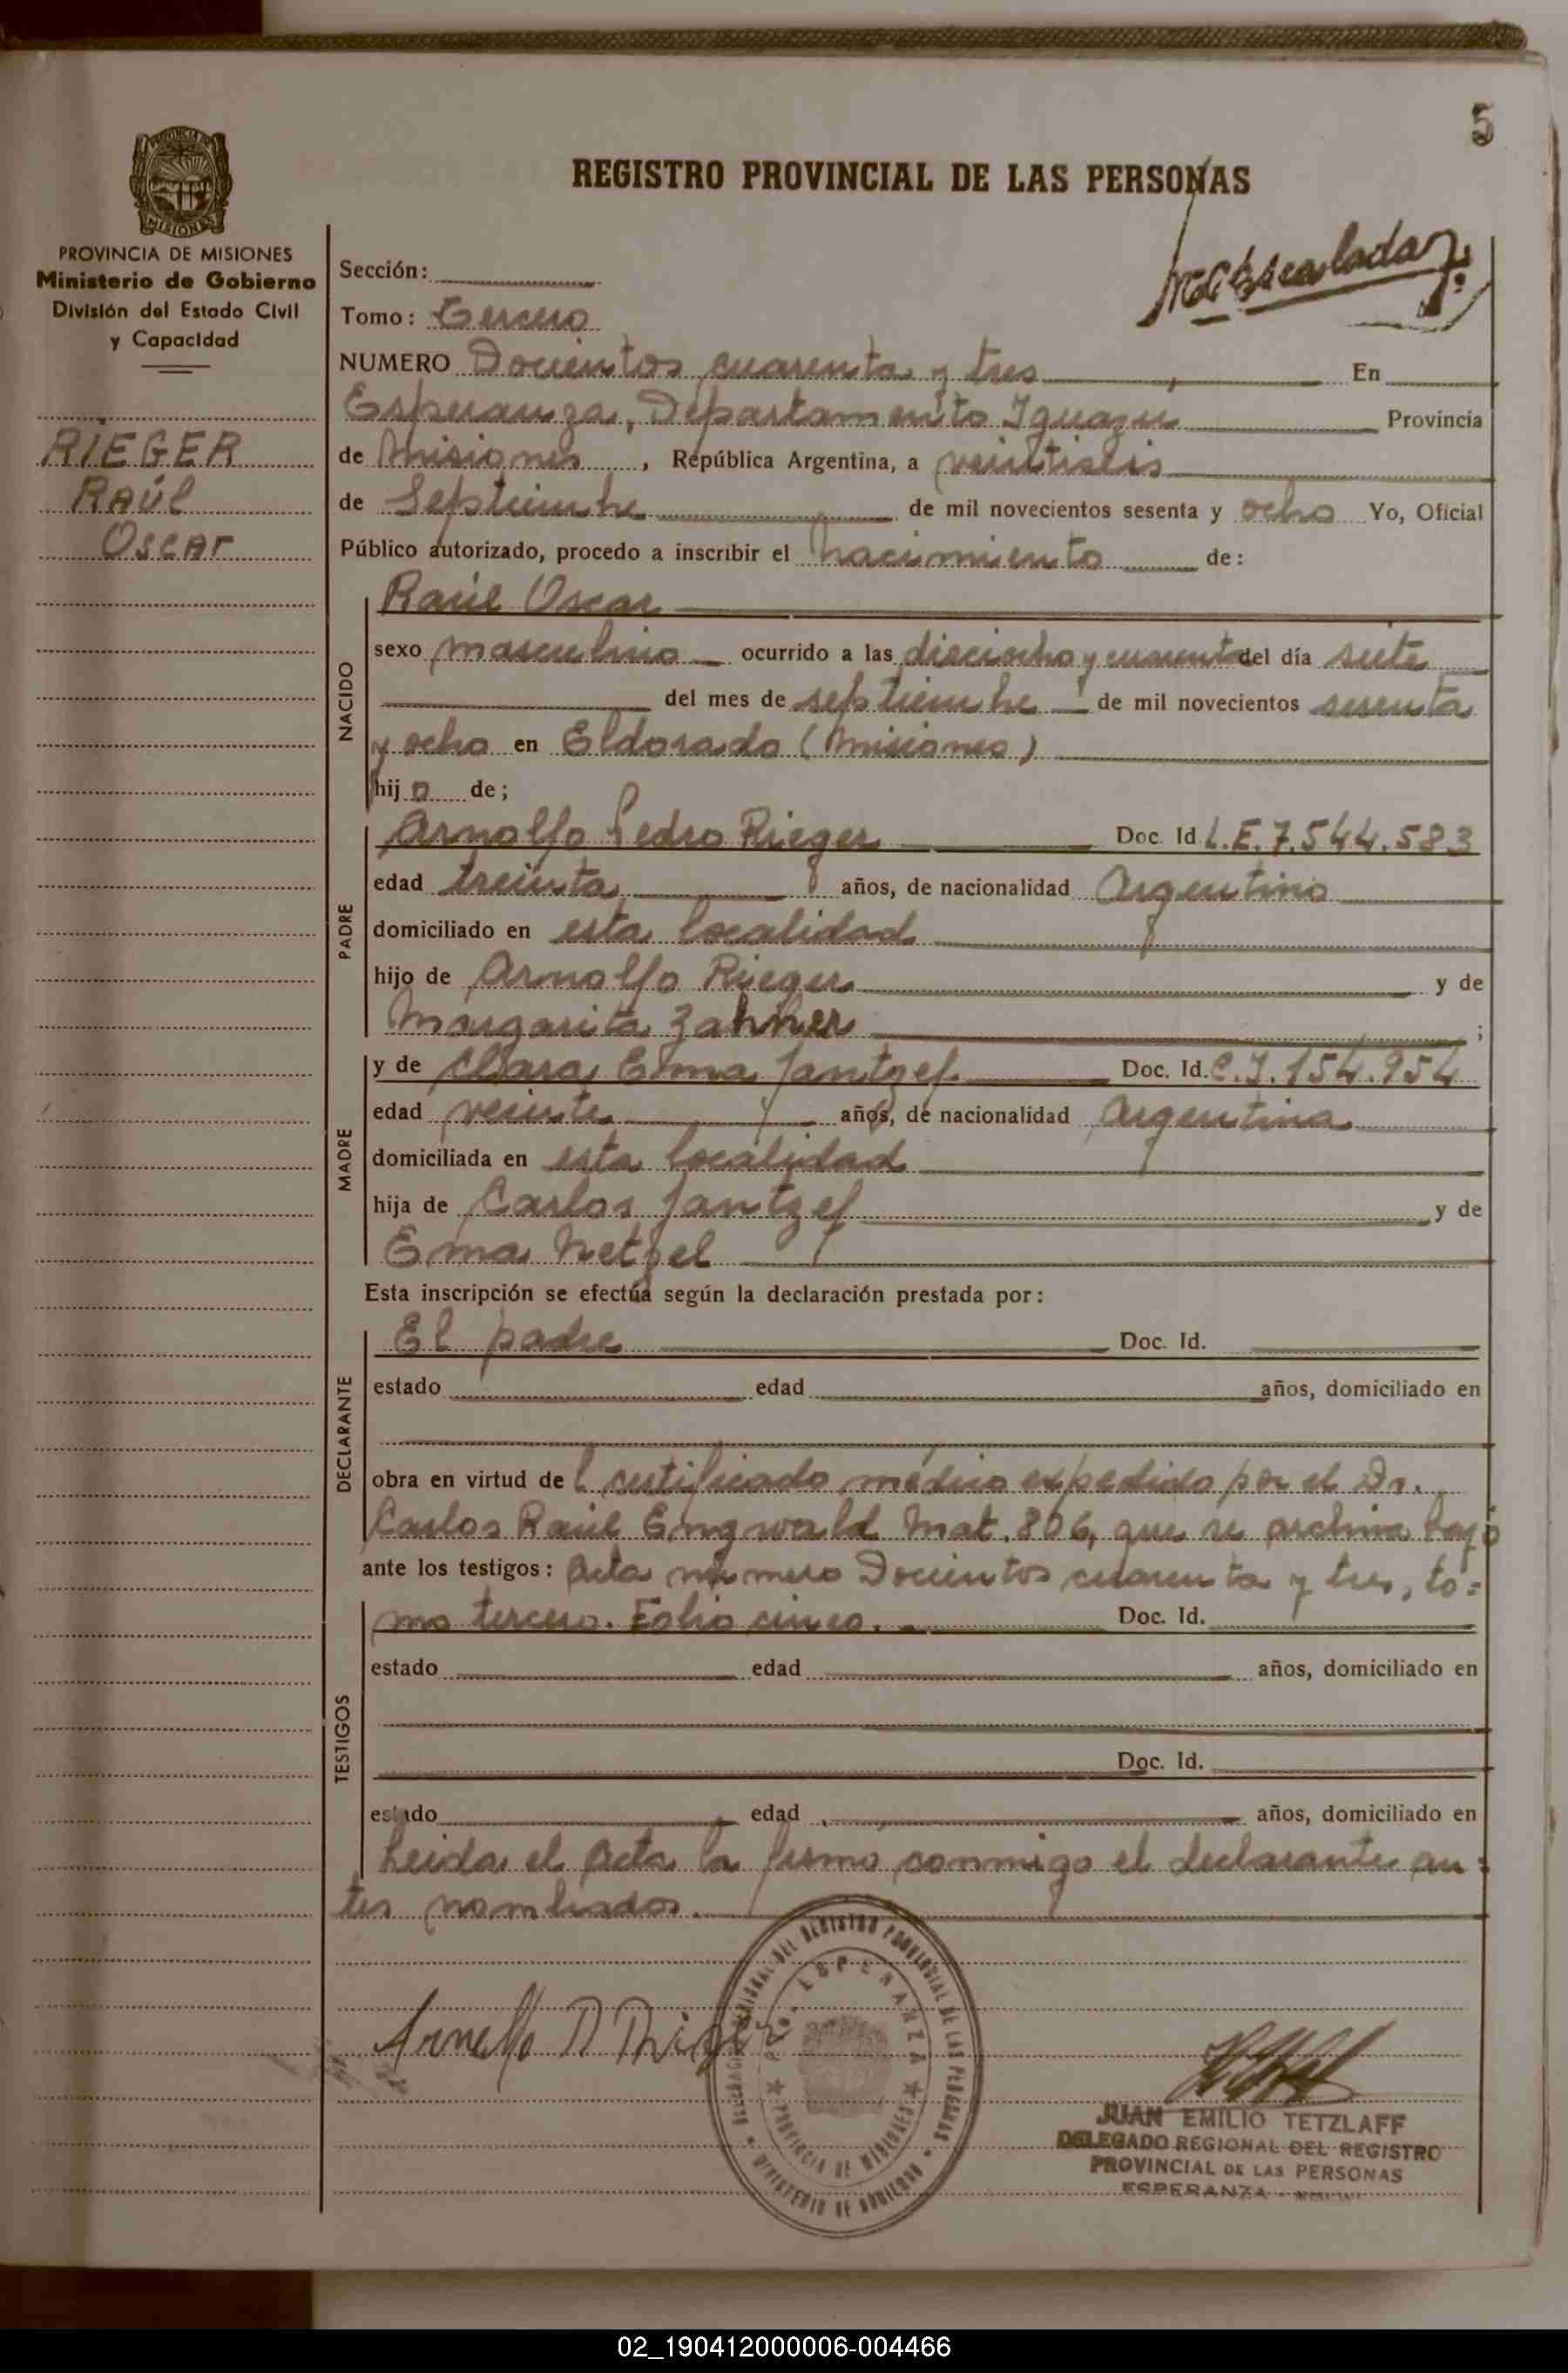 5
REGISTRO PROVINCIAL DE LAS PERSONAS
PROVINCIA DE MISIONES
Ministerio de Gobierno
División del Estado Civil
y Capacidad
RIEGER
RAÚL
OSCAR
Sección:
Tomo: Tercero
NUMERO Docientos cuarenta y tres En
Esperanza, Departamento Iguazu Provincia
de Misiones, República Argentina, a veintiseis
de Septiembre de mil novecientos sesenta y ocho Yo, Oficial
Público autorizado, procedo a inscribir el nacimiento de:
Raúl Oscar
NACIDO
sexo masculino ocurrido a las dieciocho y cuarenta del día siete
del mes de septiembre de mil novecientos sesenta
y ocho en Eldorado (Misiones)
hijo de;
PADRE
Arnolfo Pedro Rieger Doc. Id. L.E. 7.544.583
edad treinta años, de nacionalidad Argentino
domiciliado en esta localidad
hijo de Arnolfo Rieger y de
Margarita Zahner;
MADRE
y de Clara Ema Jantzef Doc. Id. C.I. 154.954
edad veinte años, de nacionalidad Argentina
domiciliada en esta localidad
hija de Carlos Jantzef y de
Ema Netzel
Esta inscripción se efectúa según la declaración prestada por:
DECLARANTE
El padre Doc. Id.
estado edad años, domiciliado en
obra en virtud del certificado médico expedido por el Dr.
Carlos Raúl Engwald Mat. 806, que se archiva bajo
ante los testigos: Acta número Docientos cuarenta y tres, to=
TESTIGOS
mo tercero. Folio cinco. Doc. Id.
estado edad años, domiciliado en
Doc. Id.
estado edad años, domiciliado en
Leida el Acta la firmó conmigo el declarante an=
tes nombrados.
JUAN EMILIO TETZLAFF
DELEGADO REGIONAL DEL REGISTRO
PROVINCIAL DE LAS PERSONAS
ESPERANZA
02_190412000006-004466